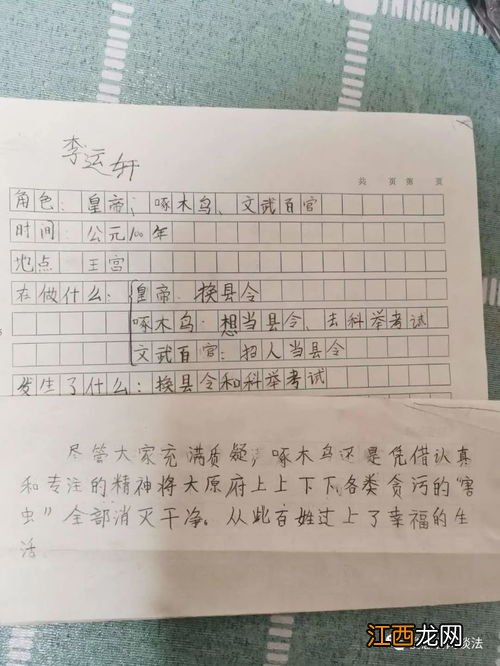 李运轩
共 页 第 页
角色：皇帝；啄木鸟、文武百官
时间：公元100年
地点 王宫
在做什么：皇帝：换县令
啄木鸟：想当县令、去科举考试
文武百官：招人当县令
发生了什么：换县令和科举考试
尽管大家充满质疑，啄木鸟还是凭借认真
和专注的精神将大原府上上下下,各类贪污的"害
虫"全部消灭干净。从此百姓过上了幸福的生
活
谈法
江西龙网
www.jxlow.com